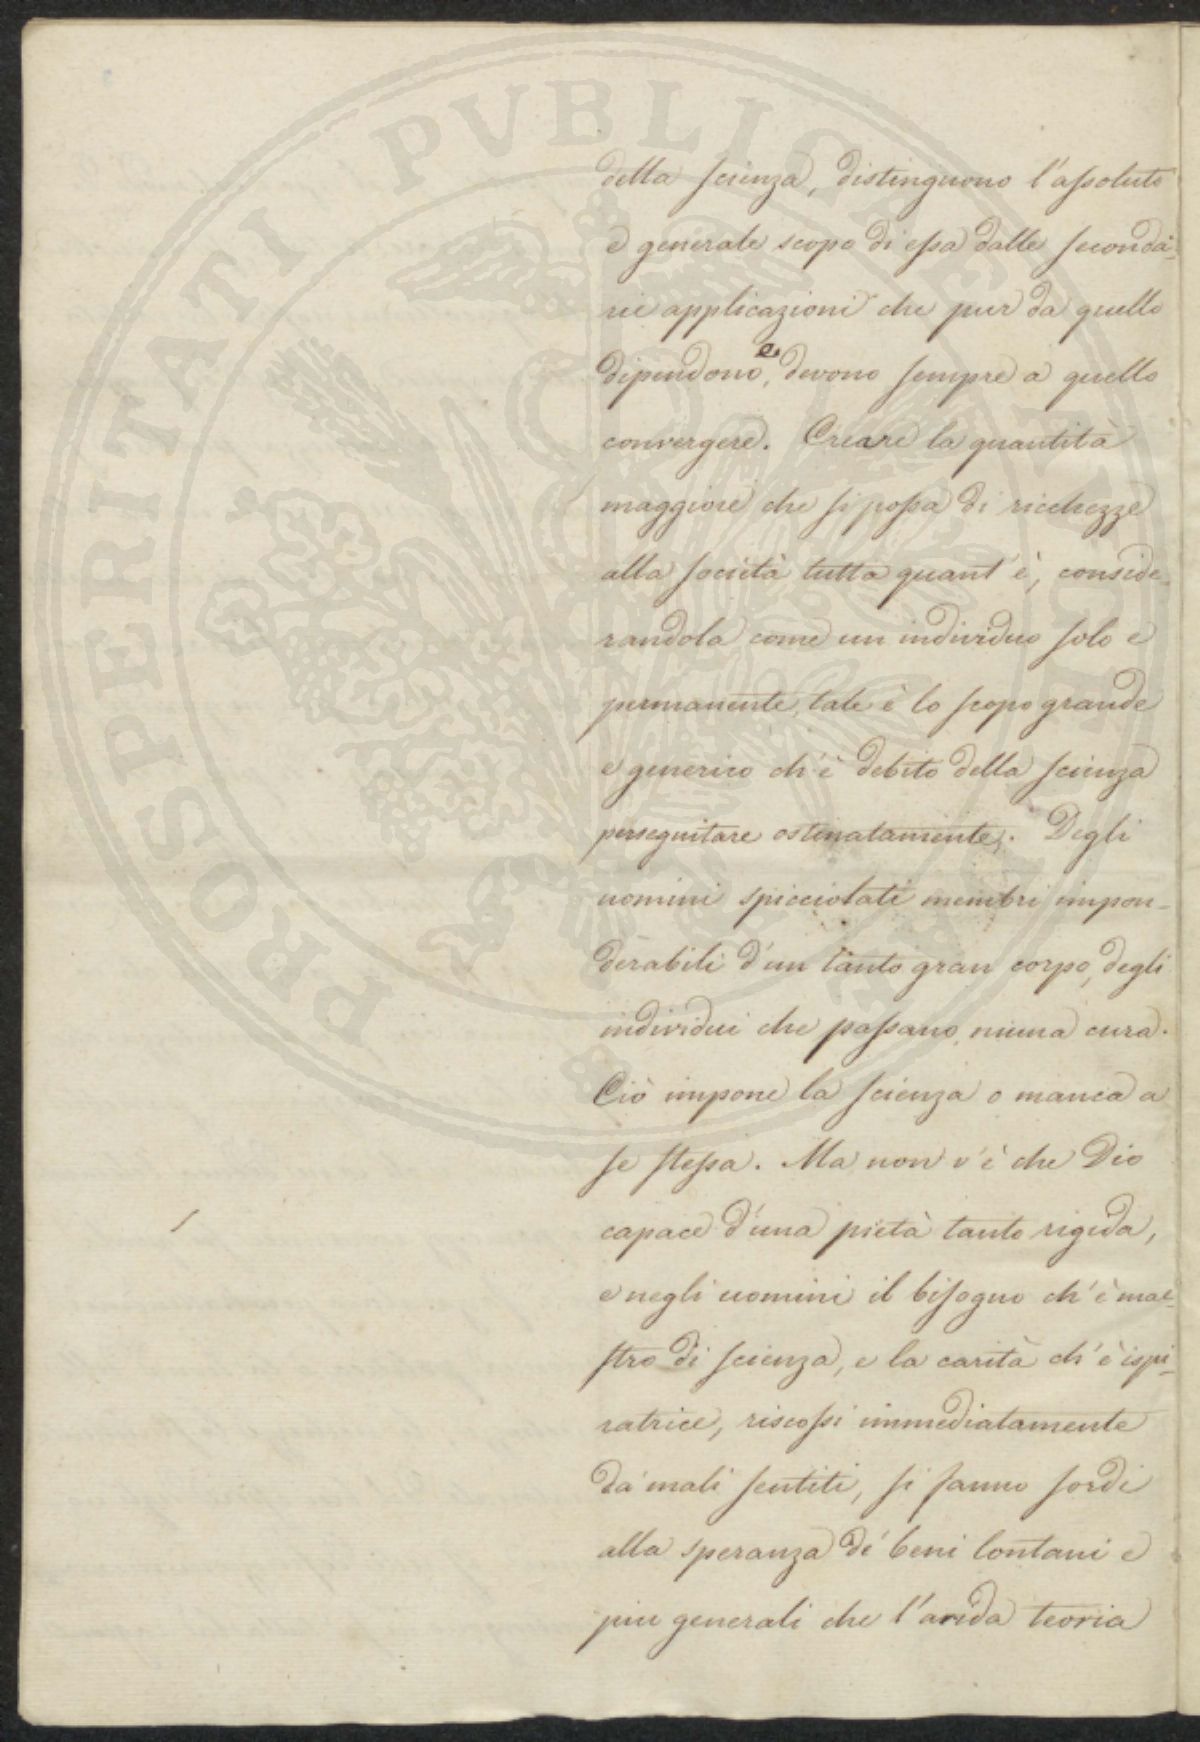 della scienza, distinguono l'assoluto
e generale scopo di essa dalle seconda-
rie applicazioni che pur da quello
dipendono e, devono sempre a quello
convergere. Creare la quantità
maggiore che si possa di ricchezze
alla società tutta quant'è, conside-
randola come un individuo solo e
permanente, tale è lo scopo grande
e generico ch'è debito della scienza
perseguitare ostinatamente. Degli
uomini spicciolati membri impon-
derabili d'un tanto gran corpo, degli
individui che passano, niuna cura.
Ciò impone la scienza o manca a
se stessa. Ma non v'è che Dio
capace d'una pietà tanto rigida,
e negli uomini il bisogno ch'è mae-
stro di scienza, e la carità ch'è ispi-
ratrice, riscossi immediatamente
da' mali sentiti, si fanno sordi
alla speranza de' beni lontani e
piu generali che l'arida teoria
PROSPERITATI PVBLICAE